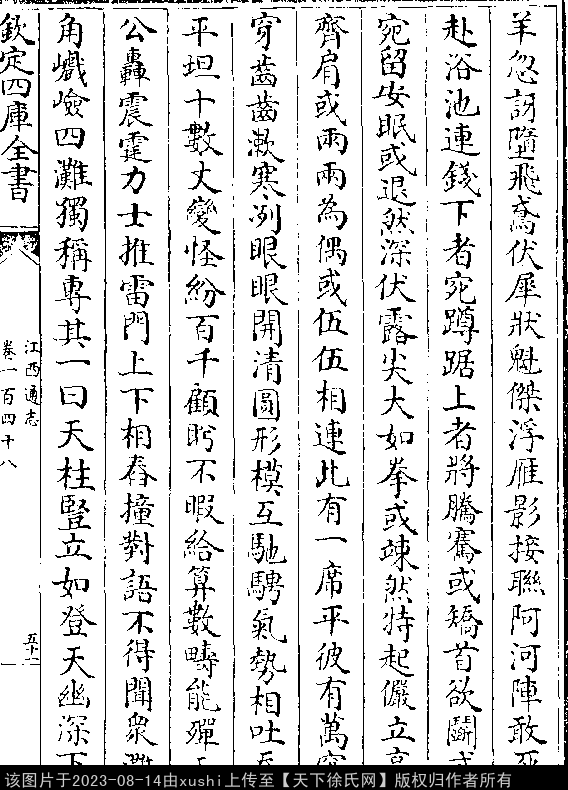 羊忽訝墮飛鳶伏犀狀魁傑浮雁影接聯阿河陣敢死
赴浴池連錢下者宛蹲踞上者將騰騫或矯首欲鬬或
宛留安眠或退然深伏露尖大如拳或竦然特起儼立高
齊肩或兩兩為偶或伍伍相連此有一席平彼有萬
穿齒齒漱寒冽眼眼開清圓形模互馳騁氣勢相吐吞
平坦十數丈變怪紛百千顧眄不暇給算數疇能殫
公轟震霆力士推雷門上下相舂撞對語不得聞衆灘
角巇嶮四灘獨稱專其一曰天柱豎立如登天幽深下
欽定四庫全書
江西通志
卷一百四十八
五十二
该图片于2023-08-14由xushi上传至【天下徐氏网】版权归作者所有